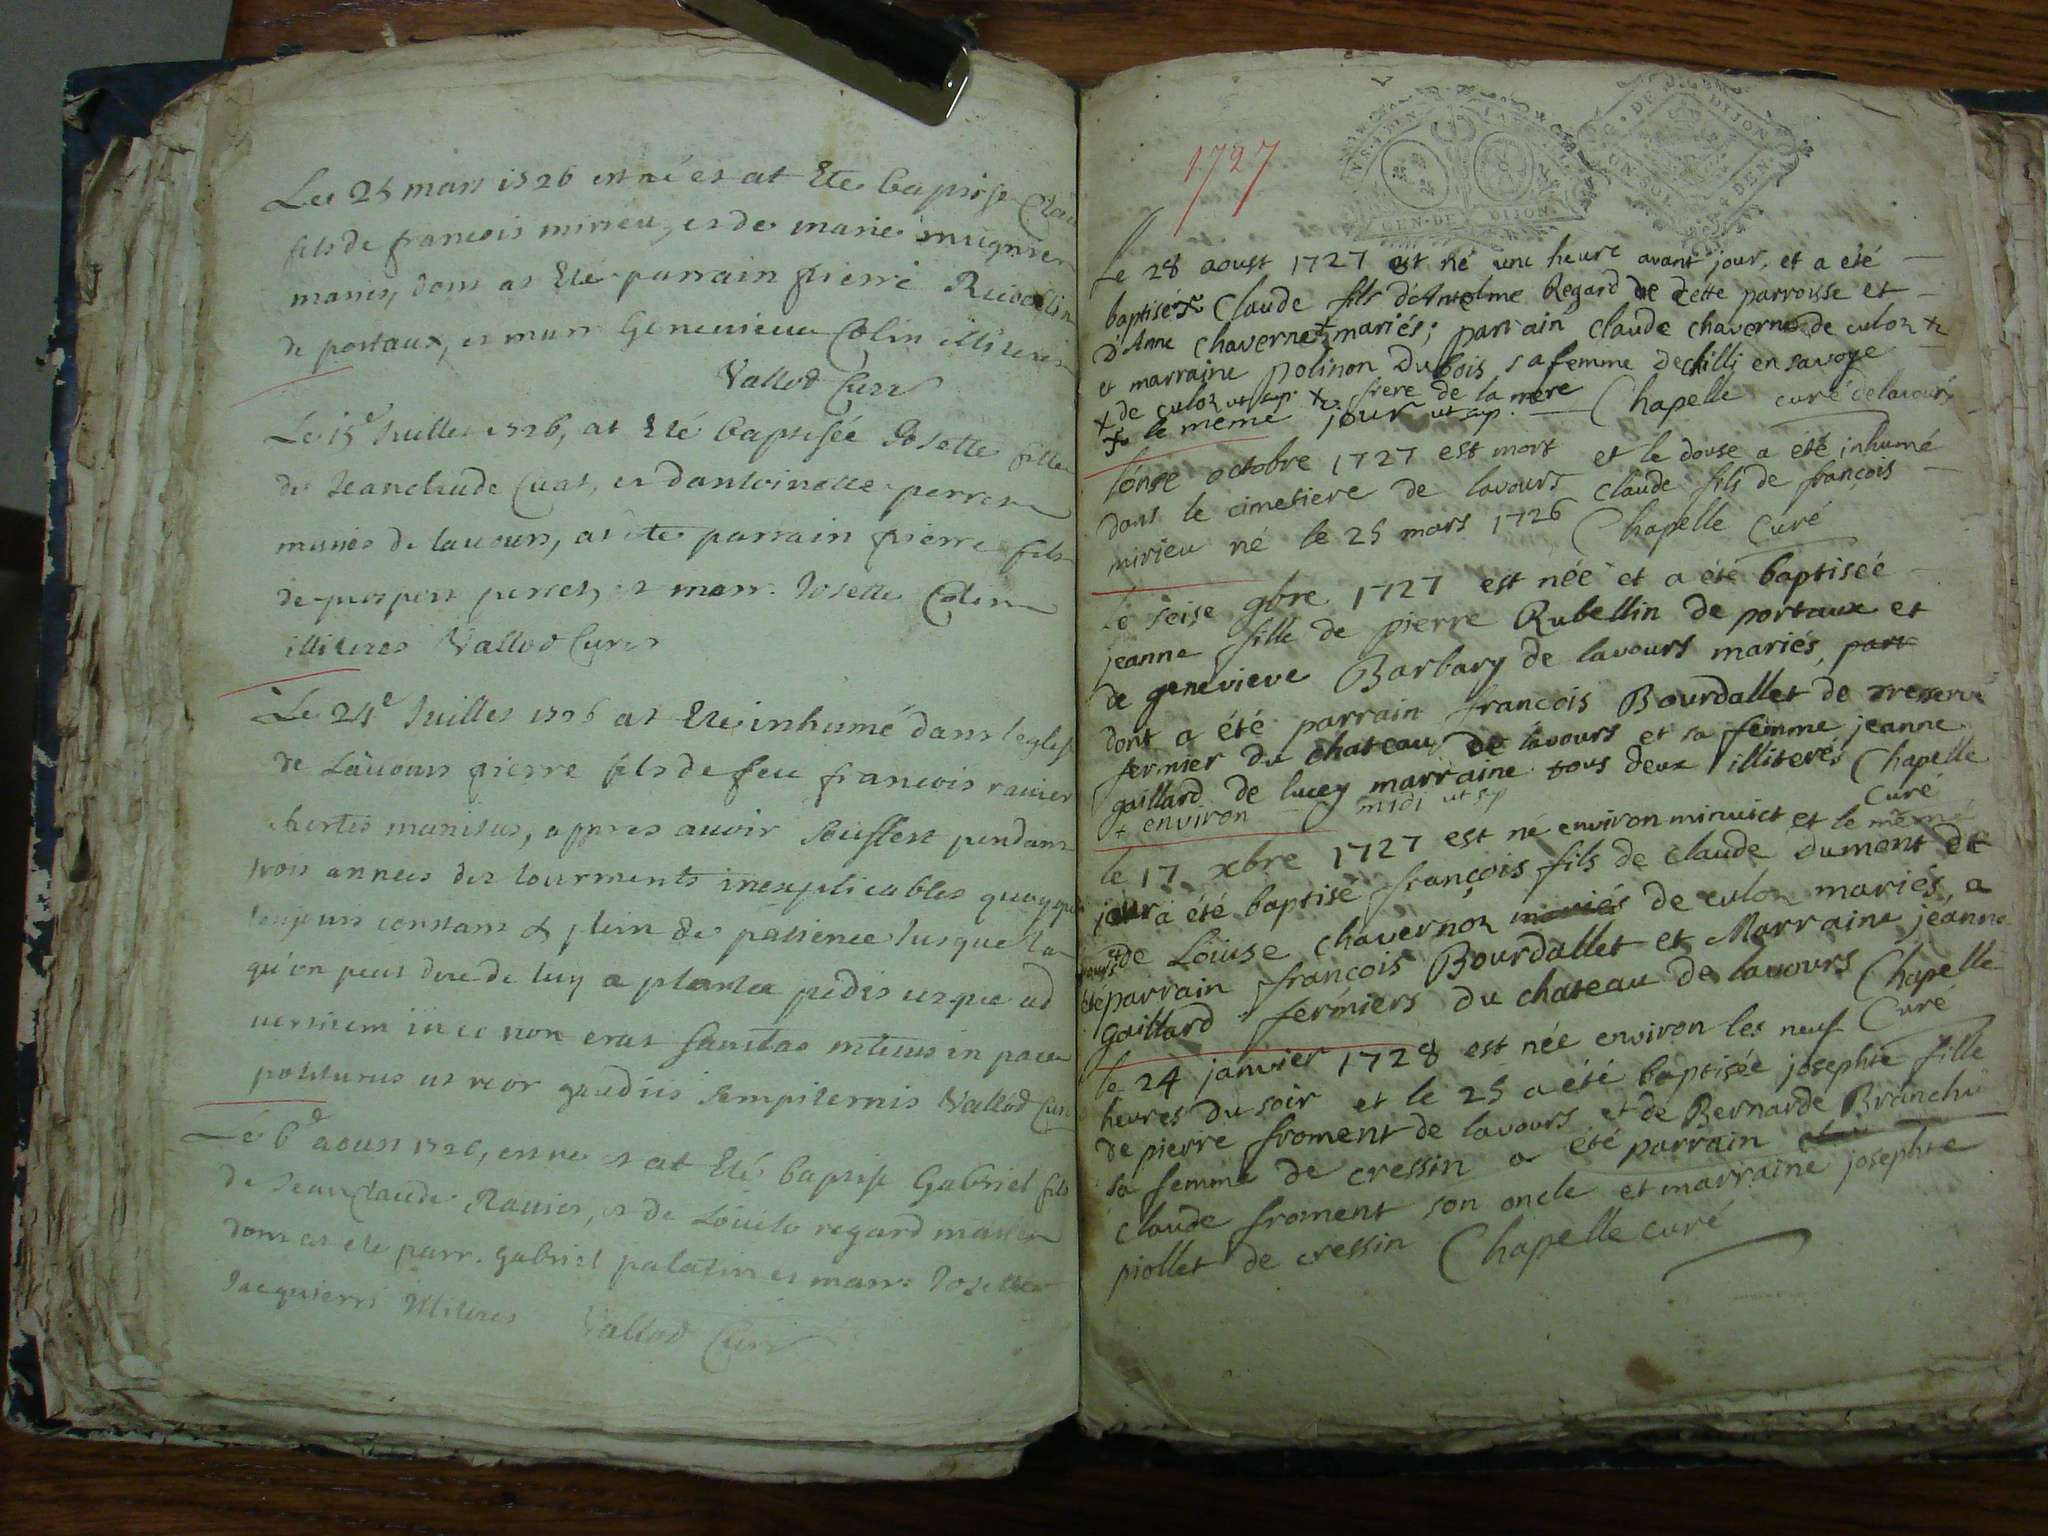 Le 25 mars 1726 est né et at Eté baptisé Clau
fils de francois mirieu, et de marie
maries, dont at Eté parrain pierre Rubellin
de portaux, et marr Genevieve Colin illiteres
Vallod Curé
Le 15e Juillet 1726, at Eté baptisée Josette fille
de Jeanclaude Cuat, et dantoinette perret
mariés de lavours, at ete parrain pierre fils
de perret, et marr. Josette Colin
illiteres Vallod Curé
Le 24e Juillet 1726 at Eté inhumé dans leglise
de Lavours pierre fils de feu francois ravier
munitus, appres avoir souffert pendant
trois annees des tourments inexplicables quoyque
toujours constant & plein de patience jusque la
qu'on peut dire de luy a planta pedis usque ad
verticem in eo non erat sanitas in pace
positurus ut reor gaudiis sempiternis Vallod Curé
Le 6e aoust 1726, est né et at Eté baptisé Gabriel fils
de Jean Claude Ravier, et de regard mariés
dont at ete parr. gabriel palatin et marr. Josette
Jacquier illiteres Vallod Curé
1727
GEN·DE DIJON
G·DE DIJON
Le 28 aoust 1727 est né une heure avant jour, et a été
baptisé Claude fils d'Antelme Regard de cette parroisse et
d'Anne chavernet mariés; parrain claude chavernod de culoz
et marraine polinon Dubois sa femme de chilli en savoye
x de culoz ut sup. x frere de la mere
x le meme jour ut sup. Chapelle curé de lavours
l'onse octobre 1727 est mort et le douse a été inhumé
dans le cimetiere de lavours claude fils de françois
mirieu né le 25 mars 1726 Chapelle Curé
le seise 9bre 1727 est née et a été baptisée
jeanne fille de pierre Rubellin de portaux et
de genevieve Barbary de lavours mariés, parr
dont a été parrain françois Bourdallet de
fermier du chateau de lavours et sa femme jeanne
gaillard de lucey marraine tous deux illiterés Chapelle
Curé
+ environ midi ut sup
le 17 xbre 1727 est né environ minuict et le même
jour a été baptisé françois fils de claude Dumont de
et de Louise chavernoz mariés de culoz mariés, a
été parrain françois Bourdallet et Marraine jeanne
gaillard fermiers du chateau de lavours Chapelle
Curé
le 24 janvier 1728 est née environ les neuf
heures du soir et le 25 a été baptisée josephte fille
de pierre froment de lavours et de Bernarde Branchu
sa femme de cressin a été parrain
claude froment son oncle et marraine josephte
piollet de cressin Chapelle curé